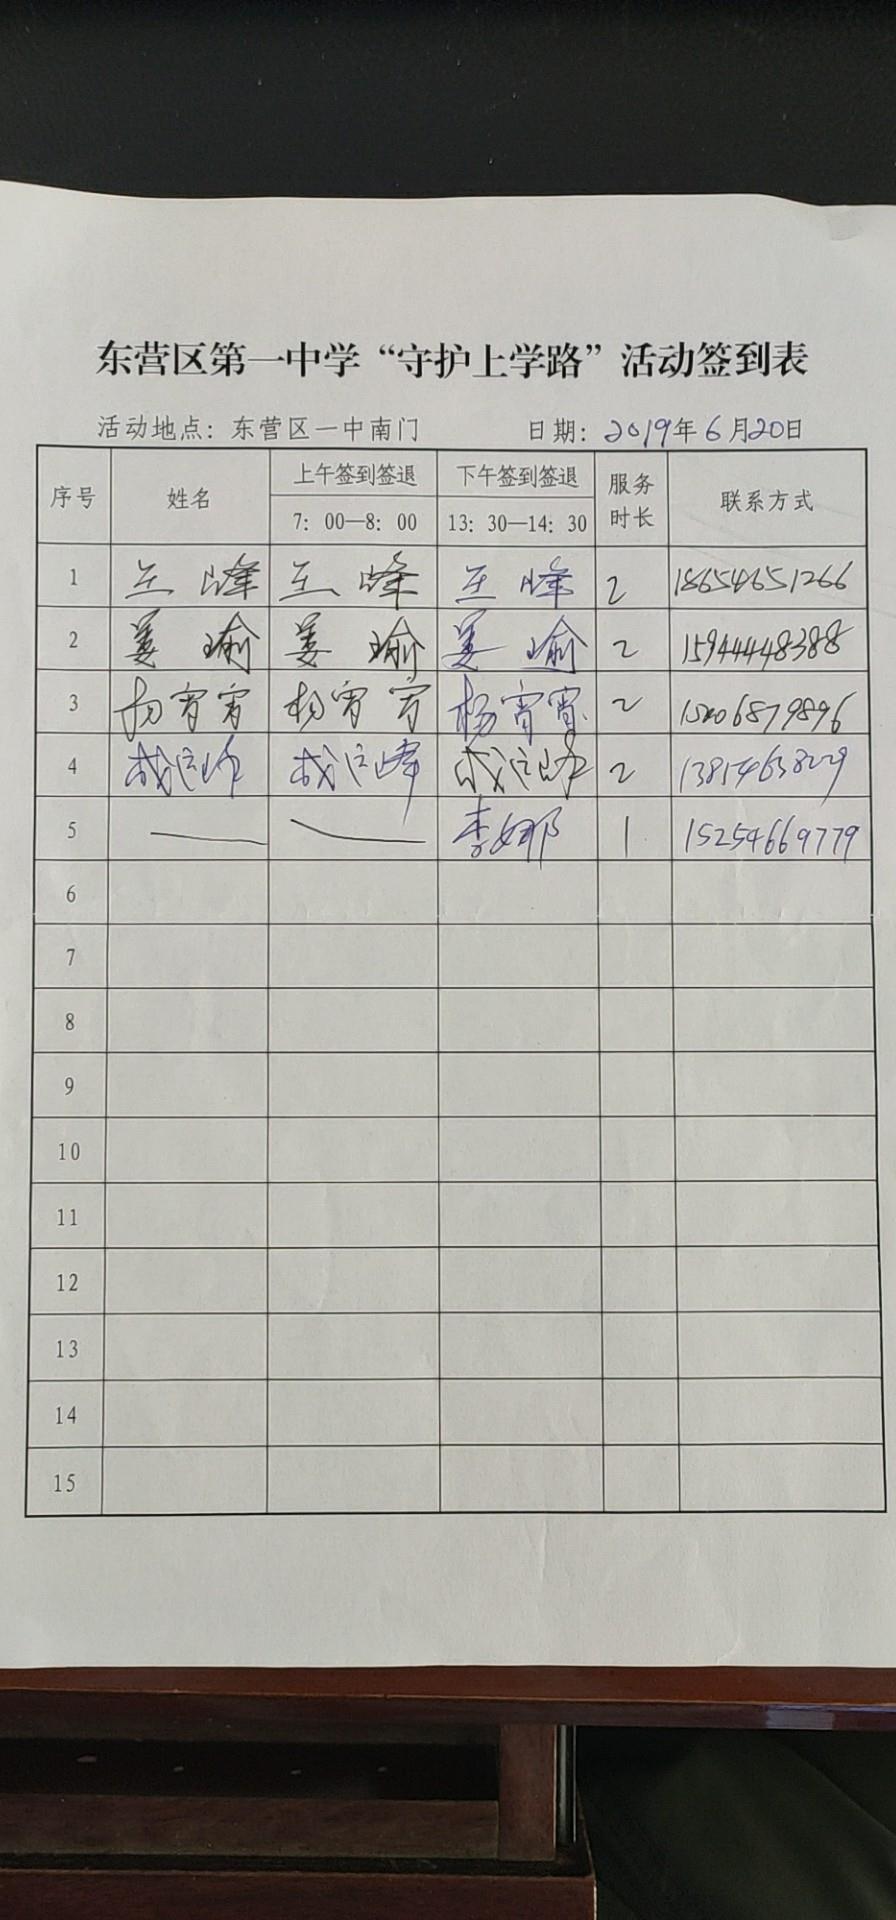 东营区第一中学“守护上学路”活动签到表
活动地点：东营区一中南门 日期：2019年6月20日
序号 姓名 上午签到签退 下午签到签退 服务时长 联系方式
7：00—8：00 13：30—14：30
1 王峰 王峰 王峰 2 18654651266
2 姜瑜 姜瑜 姜瑜 2 15944448388
3 杨宵宵 杨宵宵 杨宵宵 2 15206879896
4 峰 2
5 — — 李娜 1 15254669779
6
7
8
9
10
11
12
13
14
15